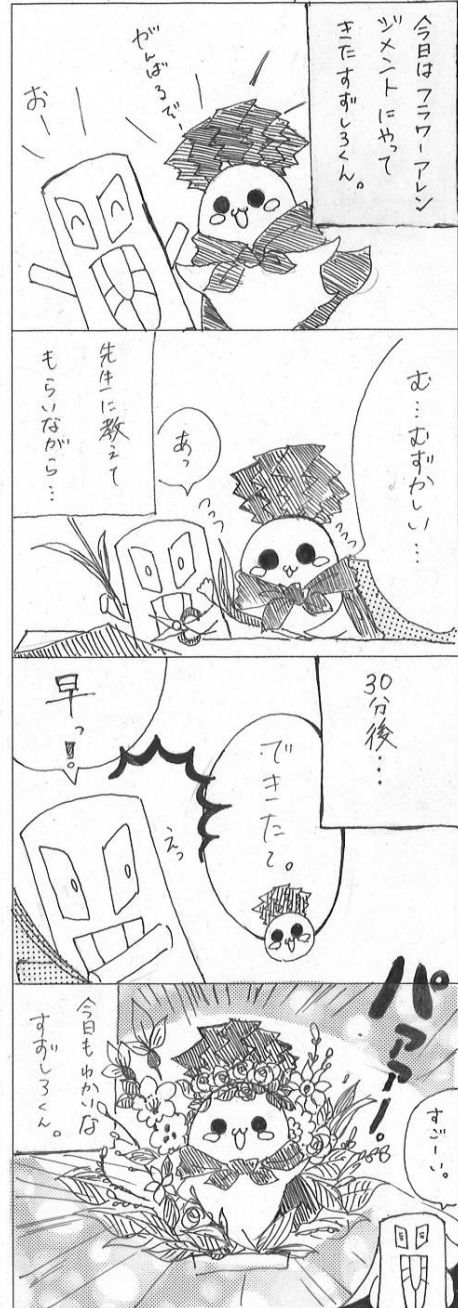 今日はフラワーアレン
ジメントにやって
きたすずしろくん。
がんばるぞー
おー
む…むずかしい…
あっ
先生に教えて
もらいながら…
30分後…
できたて。
えっ
早っ!
パァァー。
すごーい。
今日もゆかいな
すずしろくん。